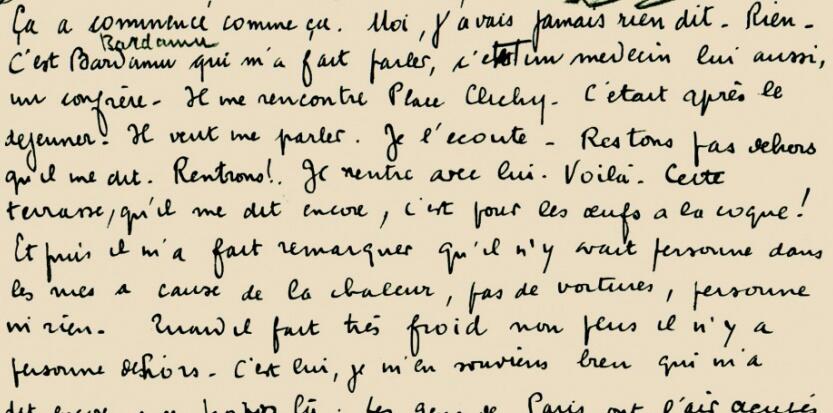 Ça a commencé comme ça. Moi, j'avais jamais rien dit. Rien.
Bardamu
C'est Bardamu qui m'a fait parler, c'est un medecin lui aussi,
un confrère. Il me rencontre Place Clichy. C'était après le
dejeuner. Il veut me parler. Je l'écoute. Restons pas dehors
qu'il me dit. Rentrons!. Je rentre avec lui. Voilà. Cette
terrasse, qu'il me dit encore, c'est pour les œufs a la coque!
Et puis il m'a fait remarquer qu'il n'y avait personne dans
les rues a cause de la chaleur, pas de voitures, personne
ni rien. Quand il fait très froid non plus il n'y a
personne dehors. C'est lui, je m'en souviens bien qui m'a
dit encore Les gens de Paris ont l'air